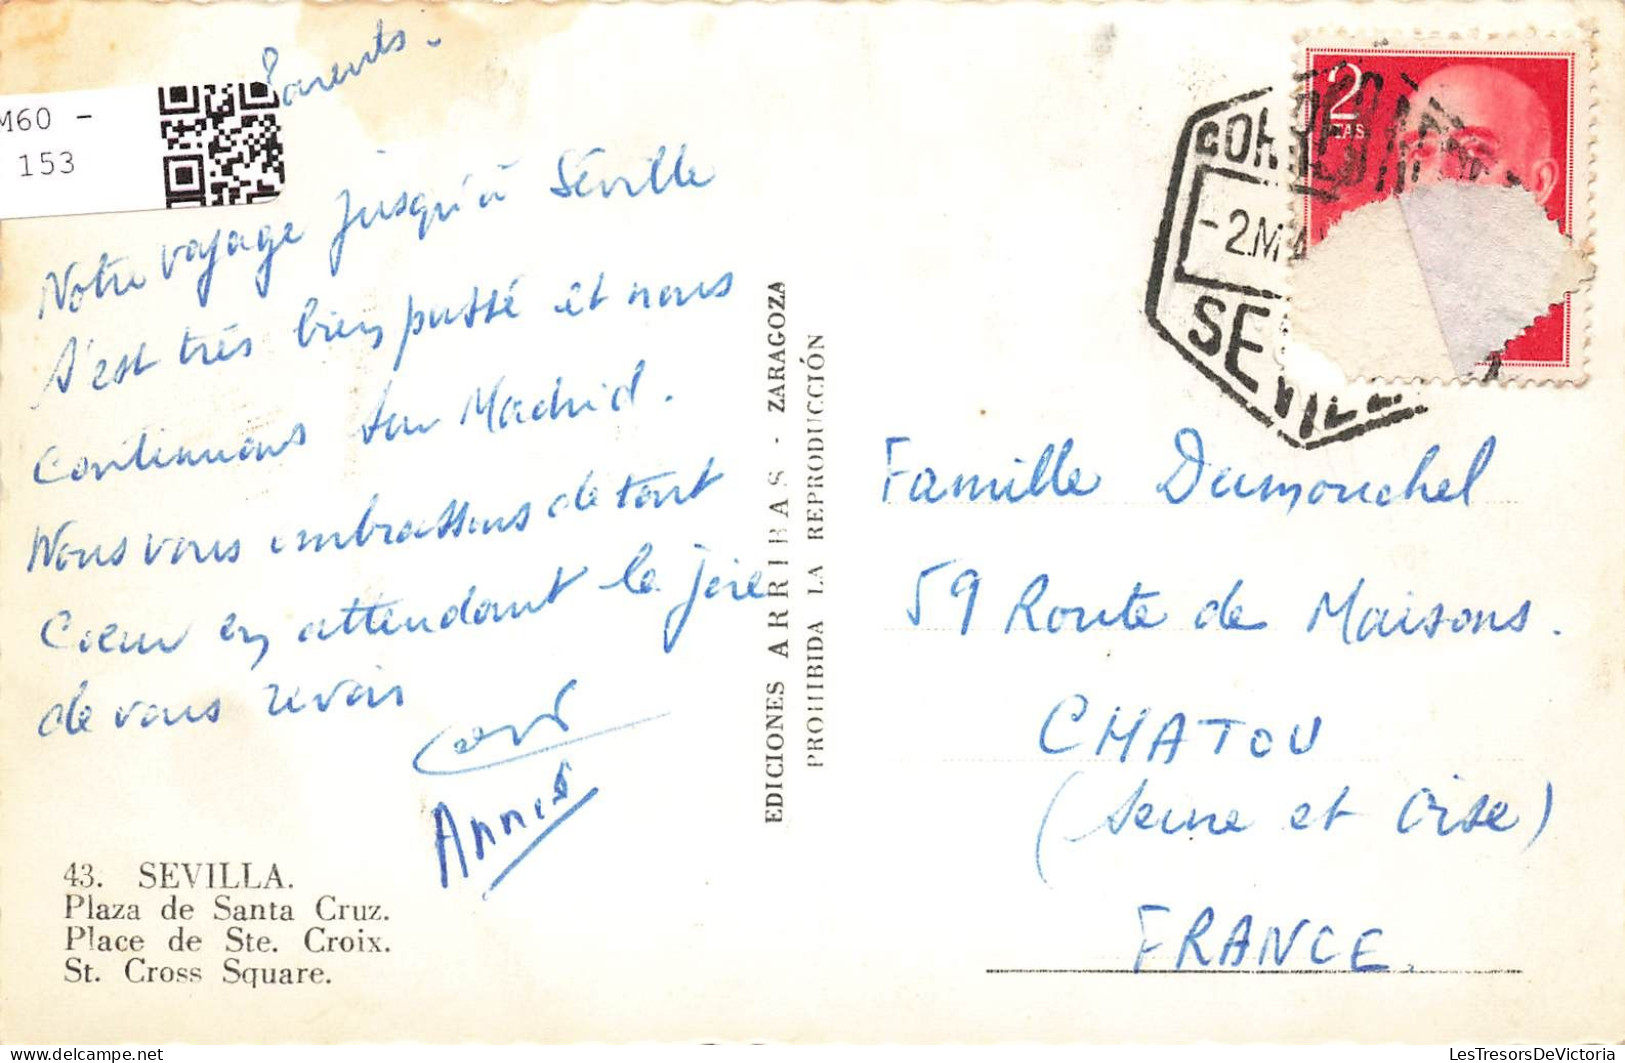 M60 -
153
Parents.
Notre voyage jusqu'à Séville
s'est très bien passé et nous
continuons sur Madrid.
Nous vous embrassons de tout
Coeur en attendant la joie
de vous revoir
43. SEVILLA.
Plaza de Santa Cruz.
Place de Ste. Croix.
St. Cross Square.
EDICIONES ARRIBAS - ZARAGOZA
PROHIBIDA LA REPRODUCCIÓN
2
-2.MA
SEVILLA
Famille Dumouchel
59 Route de Maisons.
CHATOU
(Seine et Oise)
FRANCE.
delcampe.net
LesTresorsDeVictoria